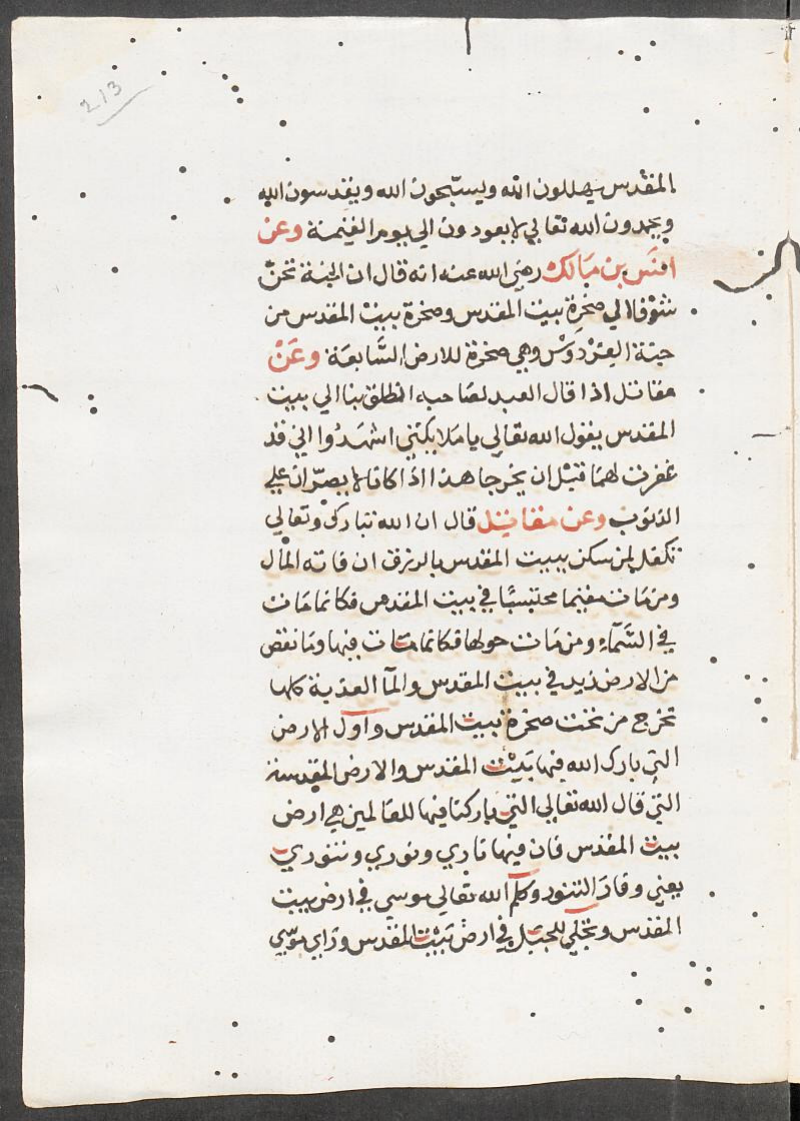 213
المقدس يهللون الله ويسبّحون الله ويقدسون الله
ويحمدون الله تعالي لا يعودون الي يوم القيمة وعن
انَس بن مَالك رضي الله عنه انه قال ان الجنة تحنّ
شوْقا الي صخرة بيت المقدس وصخرة بيت المقدس من
جنة الفِرْدوسْ وهي صخرة للارض السَّابعَة وعَنْ
مقاتل اذا قال العبد لصاحبه انطلق بنا الي بيت
المقدس يقول الله تعالي يا ملايكتي اشهدُوا اني قد
غفرت لهما قبْل ان يخرجا هذا اذا كانا لا يصرّان علي
الذنوب وعن مقاتل قال ان الله تبارك وتعالي
تكفل لمن سكن ببيت المقدس بالرزق ان فاته المال
ومن مَات مقيما محتسبًا في بيت المقدس فكانما مَات
في السَّمآء ومن مَات حولها فكانما مات فيها وما نقص
من الارض زيد في بيت المقدس والمآ العذبة كلها
تخرج من تحت صخرة بيت المقدس واول الارض
التي بارك الله فيها بَيْت المقدس والارض المقدسة
التي قال الله تعالي التي باركنا فيها للعالمين هي ارض
بيت المقدس فان فيها ناري ونوري وتنوري
يعني وفارَ التنور وكلم الله تعالي موسي في ارض بيت
المقدس وتجلي للجبَل في ارض بَيْت المقدس وراي موسي